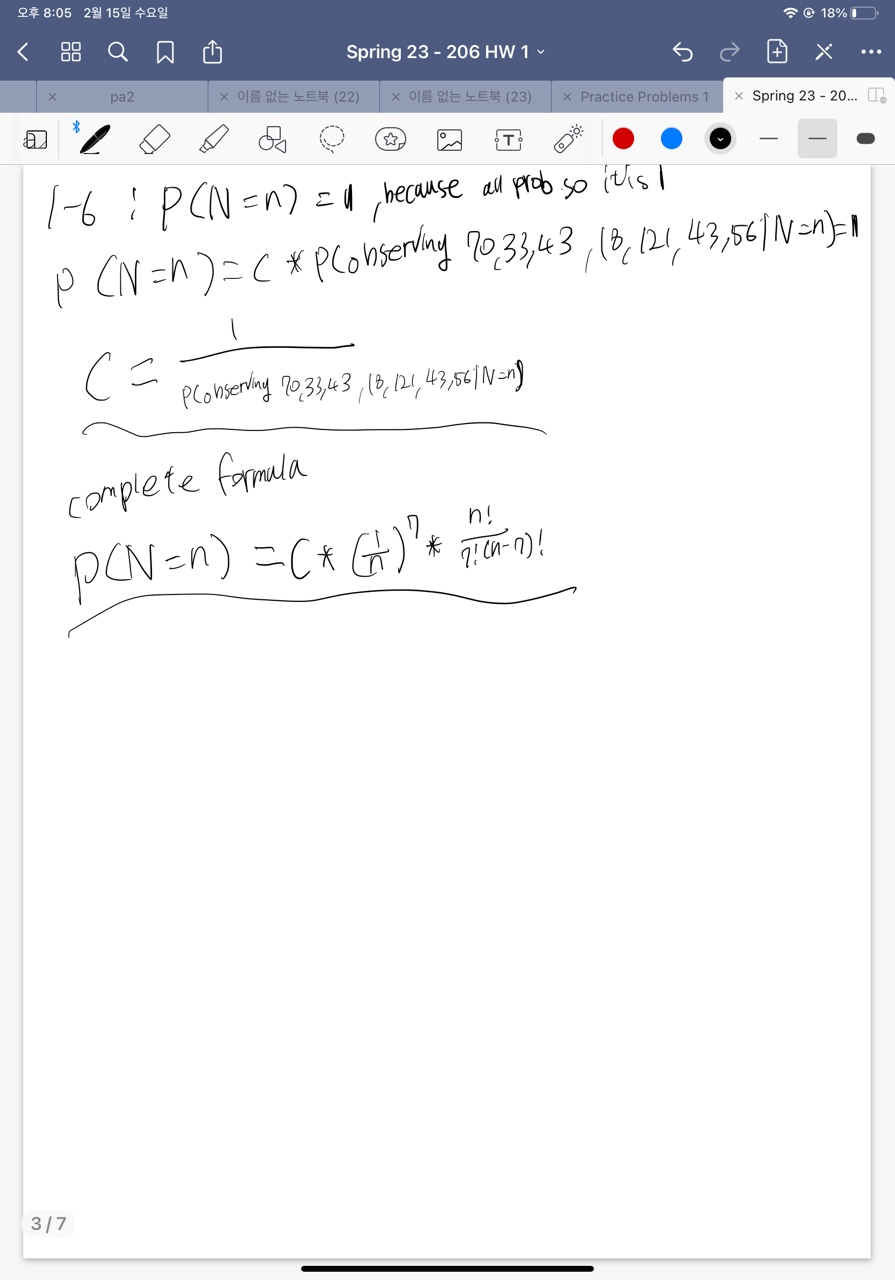 오후 8:05 2월 15일 수요일 18%
Spring 23 - 206 HW 1
pa2 이름 없는 노트북 (22) 이름 없는 노트북 (23) Practice Problems 1 Spring 23 - 20...
1-6 : P(N=n) = 1, because all prob so it is 1
P(N=n) = C * P(observing 70,33,43,18,121,43,56|N=n)=1
C = 1
P(observing 70,33,43,18,121,43,56|N=n)
complete formula
P(N=n) = C * (1/n)^7 * n!/7!(n-7)!
3 / 7